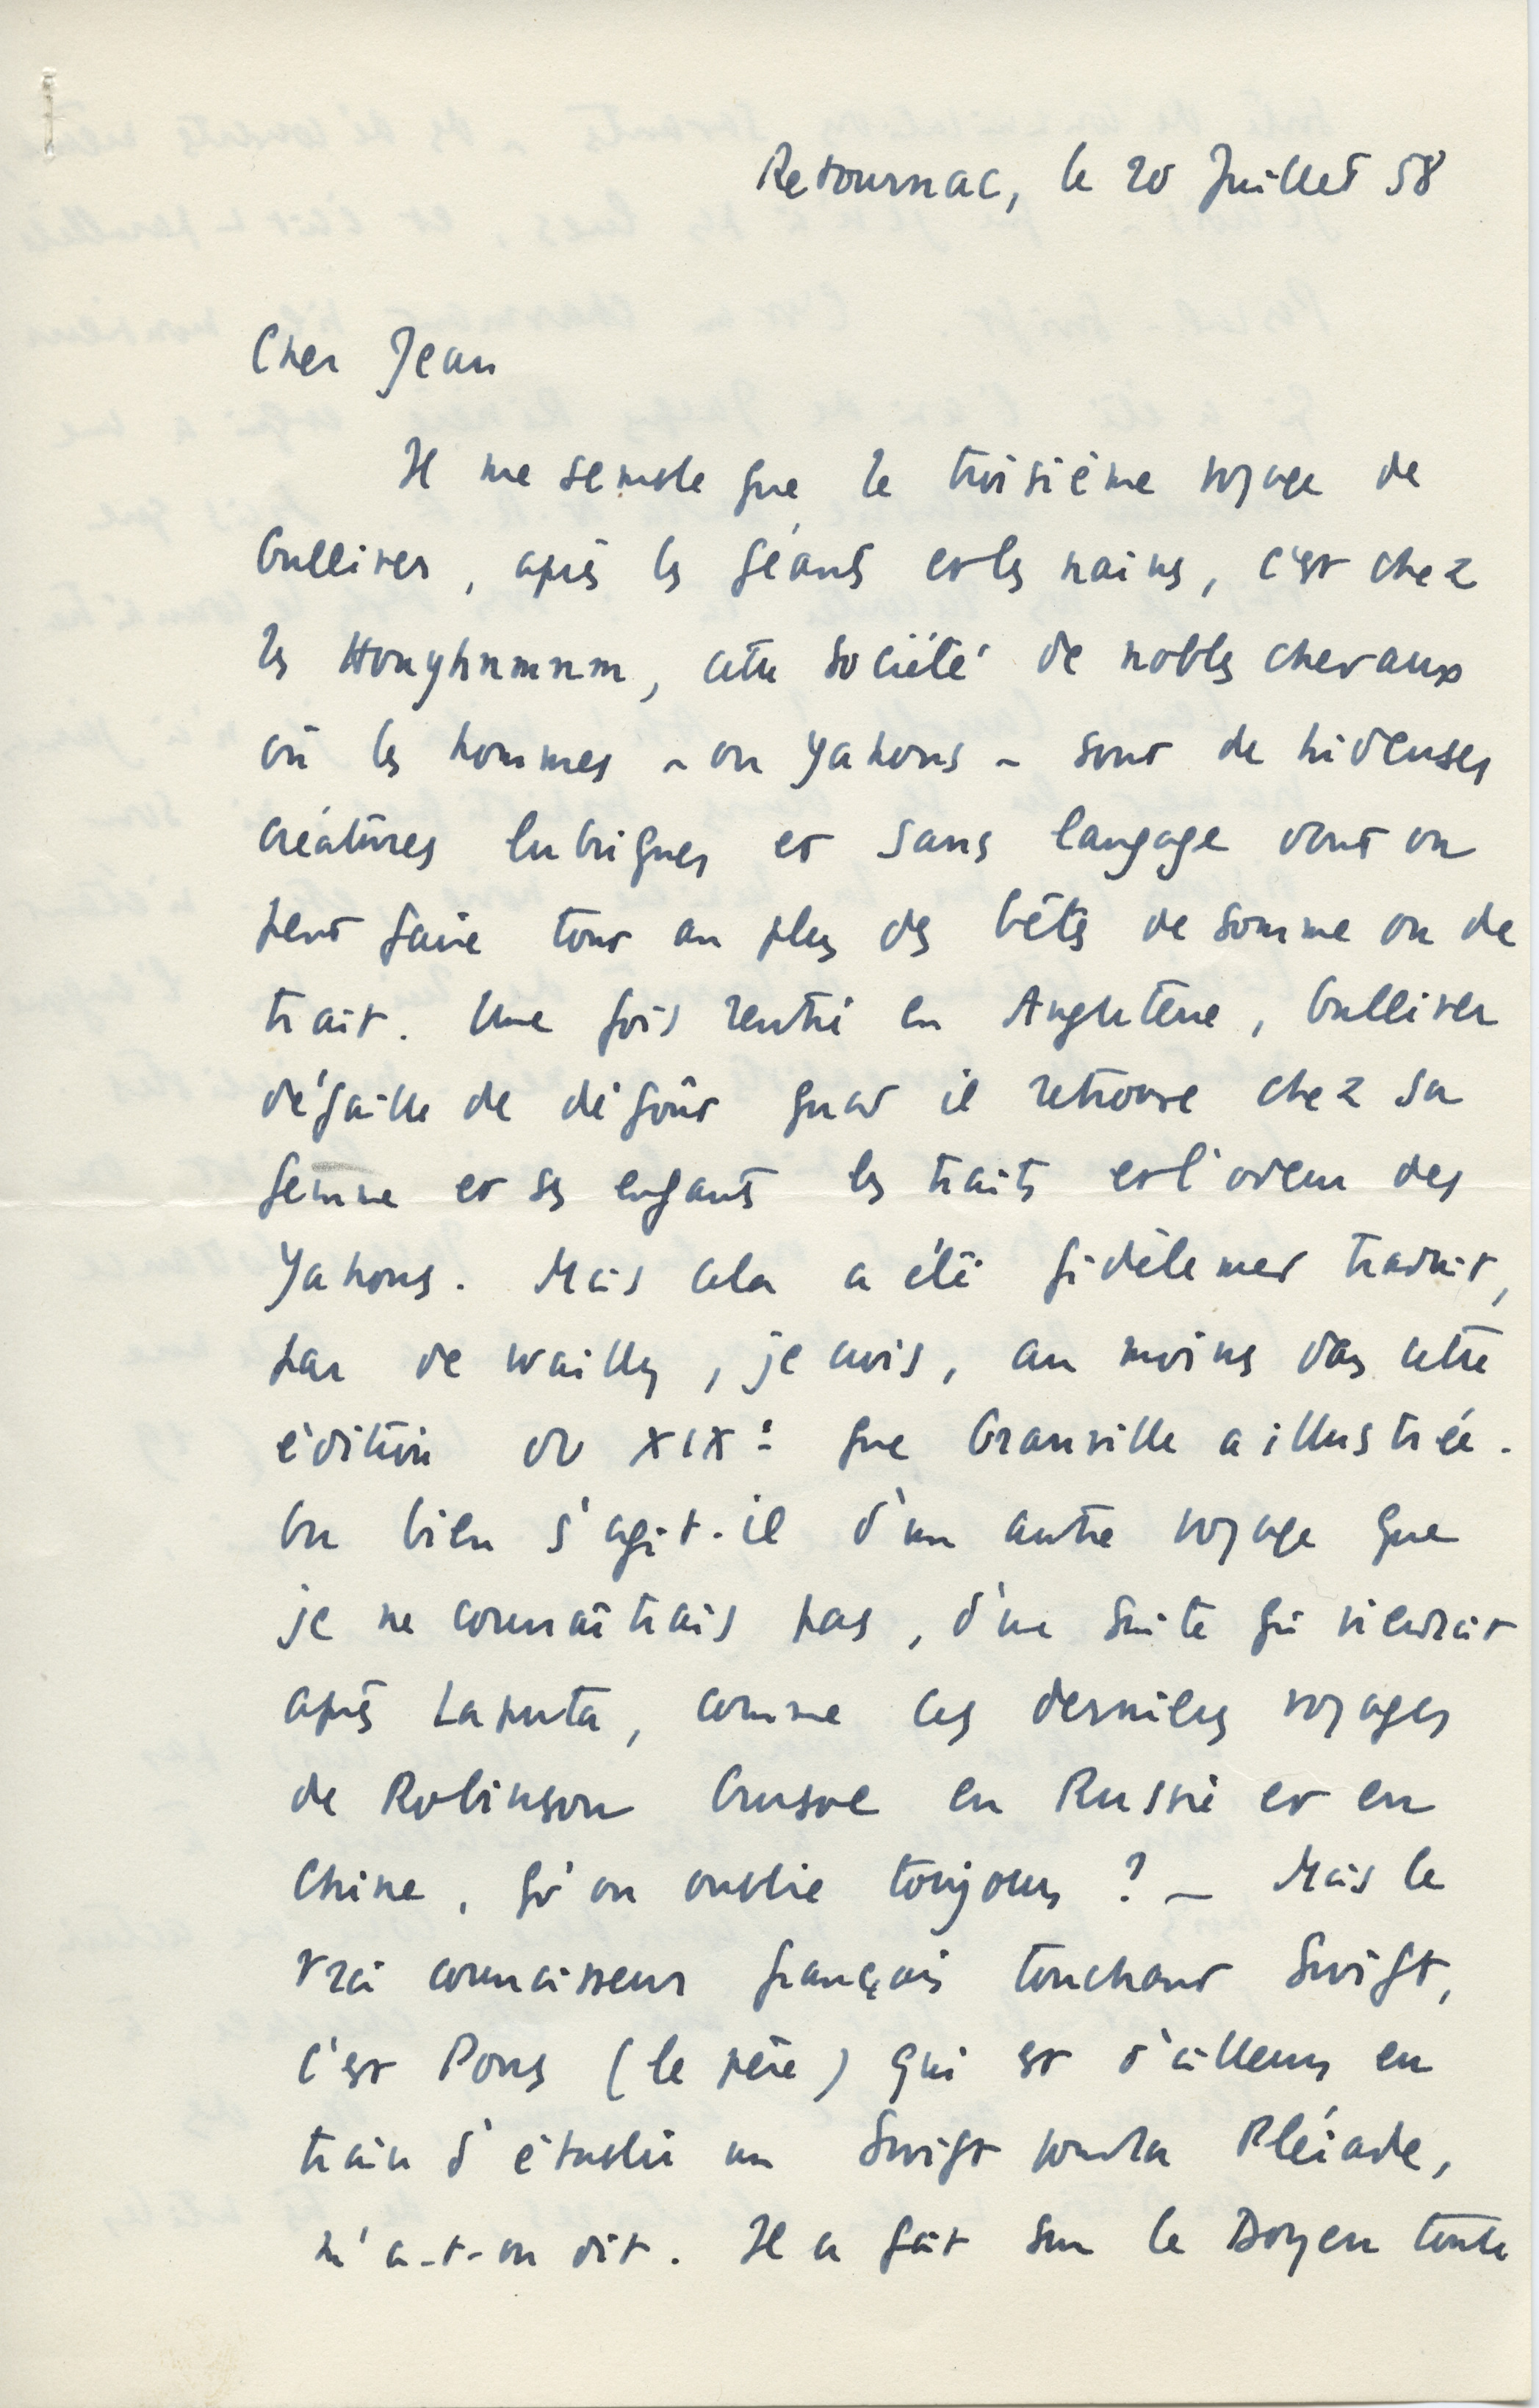 Retournac, le 20 Juillet 58
Cher Jean
Il me semble que le troisième voyage de
Gulliver, après les géants et les nains, c'est chez
les Houyhnmnm, cette société de nobles chevaux
où les hommes - ou Yahous - sont de hideuses
créatures lubriques et sans langage dont on
peut faire tout au plus des bêtes de somme ou de
trait. Une fois rentré en Angleterre, Gulliver
défaille de dégoût quand il retrouve chez sa
femme et ses enfants les traits et l'odeur des
Yahous. Mais cela a été fidèlement traduit,
par de Wailly, je crois, au moins dans cette
édition du XIXe que Granville a illustrée.
Ou bien s'agit-il d'un autre voyage que
je ne connaîtrais pas, d'une suite qui viendrait
après Laputa, comme ces derniers voyages
de Robinson Crusoe en Russie et en
Chine, qu'on oublie toujours ? — Mais le
vrai connaisseur français touchant Swift,
c'est Pons (le père) qui est d'ailleurs en
train d'établir un Swift pour la Pléiade,
m'a-t-on dit. Il a fait sur le Doyen toute